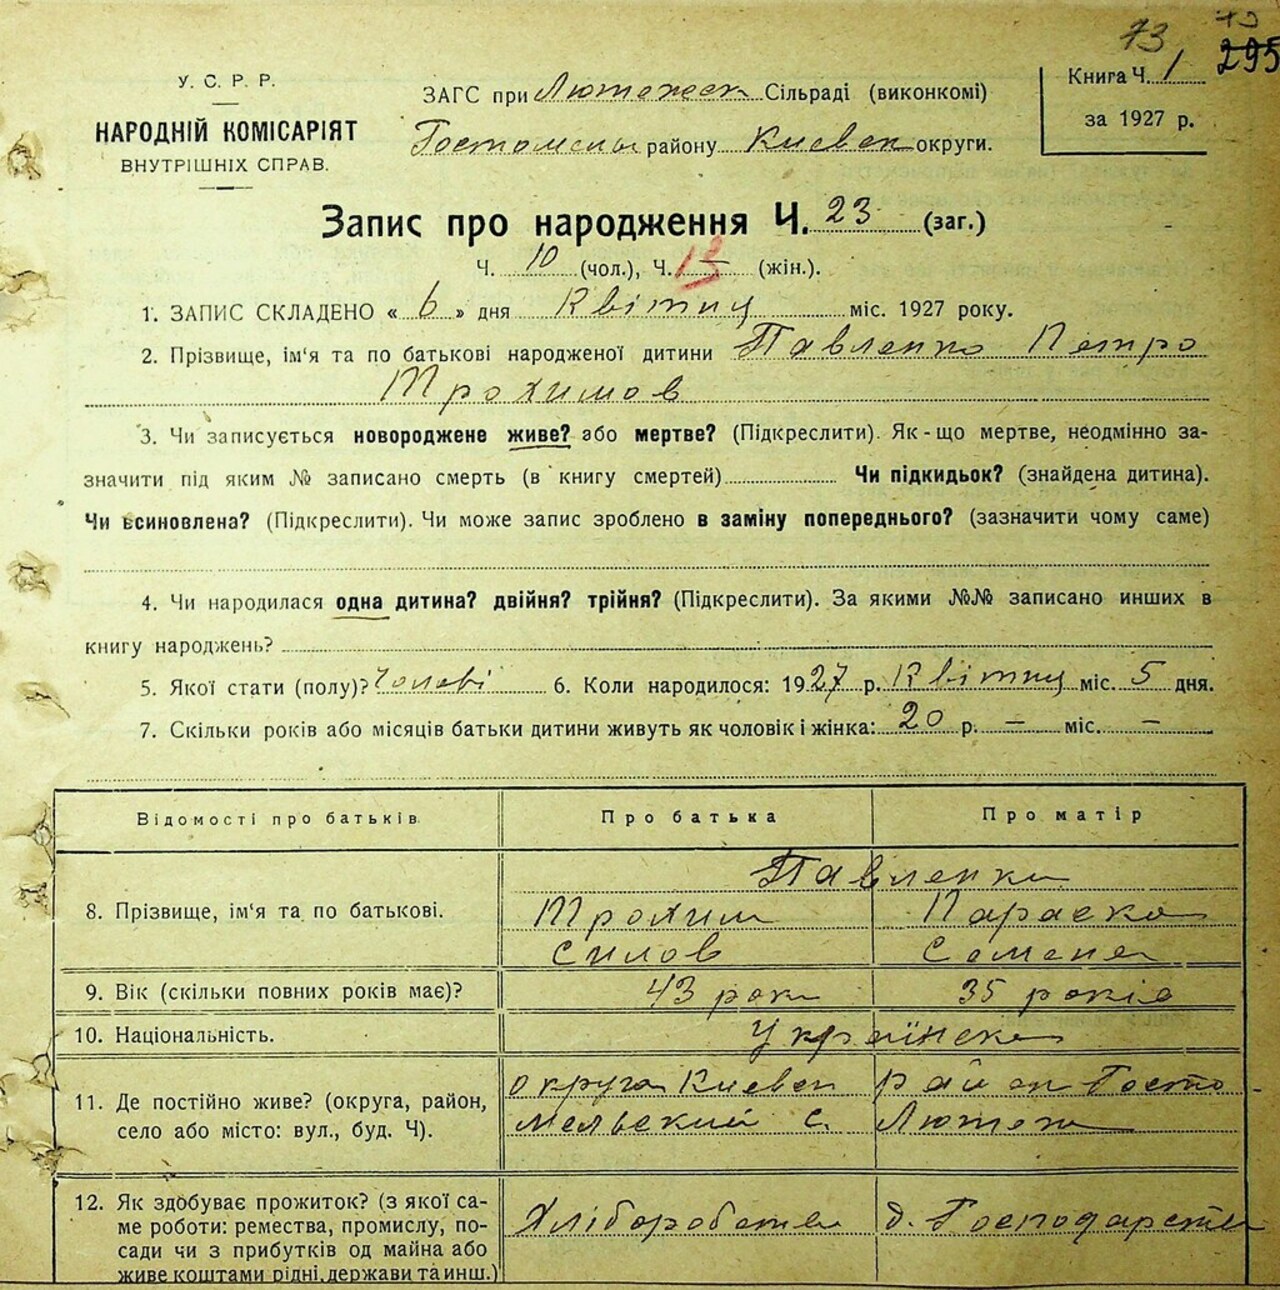 73
73
295
У. С. Р. Р.
НАРОДНІЙ КОМІСАРІЯТ
ВНУТРІШНІХ СПРАВ.
ЗАГС при Лютежск Сільраді (виконкомі)
Гостомель району Киевск округи.
Книга Ч. 1
за 1927 р.
Запис про народження Ч. 23 (заг.)
Ч. 10 (чол.), Ч. 13 — (жін.).
1. ЗАПИС СКЛАДЕНО « 6 » дня Квітня міс. 1927 року.
2. Прізвище, ім'я та по батькові народженої дитини Павленко Петро
Трохимов
3. Чи записується новороджене живе? або мертве? (Підкреслити). Як-що мертве, неодмінно за-
значити під яким № записано смерть (в книгу смертей) Чи підкидьок? (знайдена дитина).
Чи всиновлена? (Підкреслити). Чи може запис зроблено в заміну попереднього? (зазначити чому саме)
4. Чи народилася одна дитина? двійня? трійня? (Підкреслити). За якими №№ записано инших в
книгу народжень?
5. Якої стати (полу)? Чолові 6. Коли народилося: 1927 р. Квітня міс. 5 дня.
7. Скільки років або місяців батьки дитини живуть як чоловік і жінка: 20 р. — міс. —
Відомості про батьків Про батька Про матір
Павленки
8. Прізвище, ім'я та по батькові. Трохим Параска
Силов Семена
9. Вік (скільки повних років має)? 43 рок 35 років
10. Національність. Українска
11. Де постійно живе? (округа, район, округа Киевск район Госто
село або місто: вул., буд. Ч). мельский с. Лютеж
12. Як здобуває прожиток? (з якої са- Хліборобство д. Господарства
ме роботи: ремества, промислу, по-
сади чи з прибутків од майна або
живе коштами рідні, держави та инш.)